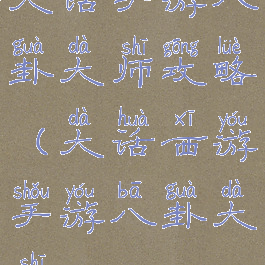 guà dà shī gōng lüè
卦大师攻略
dà huà xī yóu
(大话西游
shǒu yóu bā guà dà
手游八卦大
shī